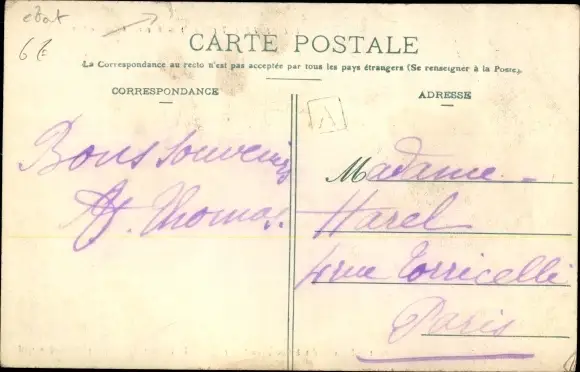 état
6€
CARTE POSTALE
La Correspondance au recto n'est pas acceptée par tous les pays étrangers (Se renseigner à la Poste).
CORRESPONDANCE
ADRESSE
A
Bons souvenirs
Thomas
Madame
Harel
4 rue Torricelli
Paris